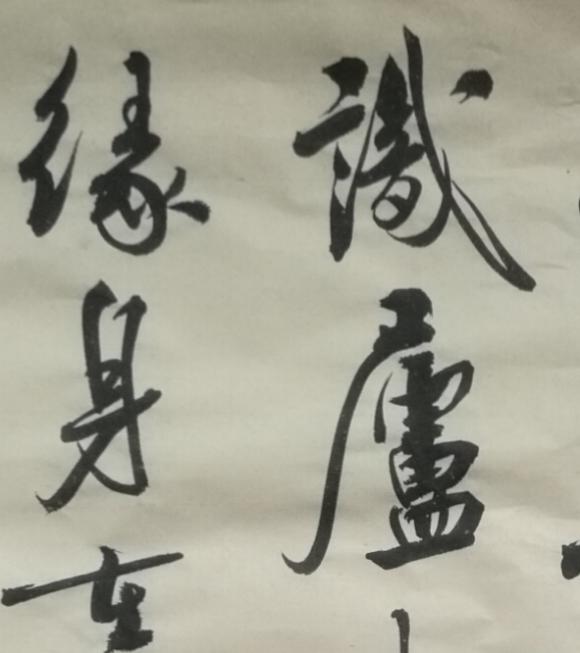 識廬
緣身在